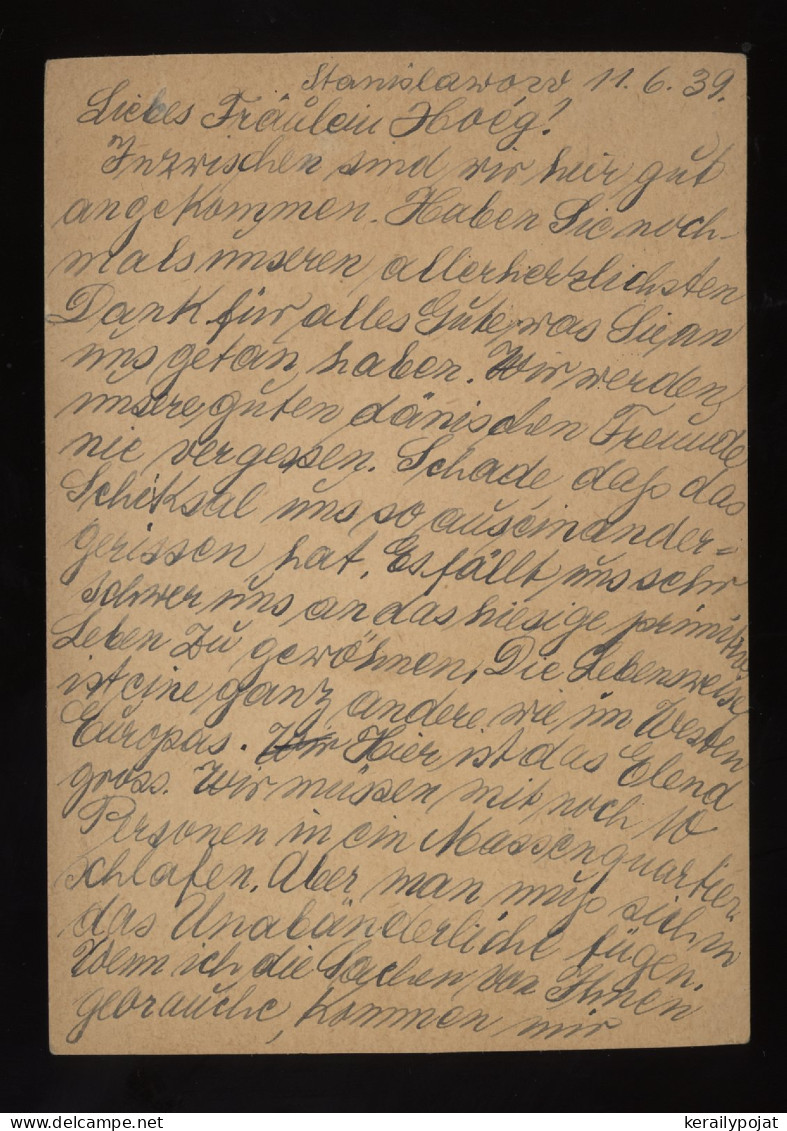 Stanislawow 11.6.39.
Liebes Fräulein Hoég!
Inzwischen sind wir hier gut
angekommen. Haben Sie noch-
mals unseren allerherzlichsten
Dank für alles Gute, was Sie an
uns getan haben. Wir werden
unsere guten dänischen Freunde
nie vergessen. Schade, daß das
Schiksal uns so auseinander=
gerissen hat. Es fällt uns sehr
schwer uns an das hiesige primitive
Leben zu gewöhnen. Die Lebensweise
ist eine ganz andere wie im Westen
Europas. Wir Hier ist das Elend
gross. Wir müssen mit noch 10
Personen in ein Massenquartier
schlafen. Aber man muß sich in
das Unabänderliche fügen.
Wenn ich die Sachen von Ihnen
gebrauche, kommen mir
kerailypojat